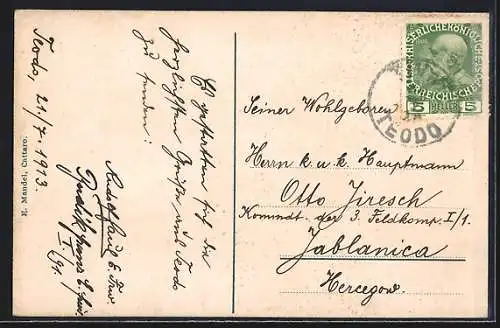 Teodo, 21./7. 1913.
Es gestatten sich die
herzlichsten Grüße aus Teodo
zu senden:
E. Mandel, Cattaro.
KAISERLICHE KÖNIGLICHE
ÖSTERREICHISCHE
5 HELLER 5
TEODO
Seiner Wohlgeboren
Herrn k. u. k. Hauptmann
Otto Jiresch
Kommdt. der 3. Feldkomp. I/1.
Jablanica
Hercegow.